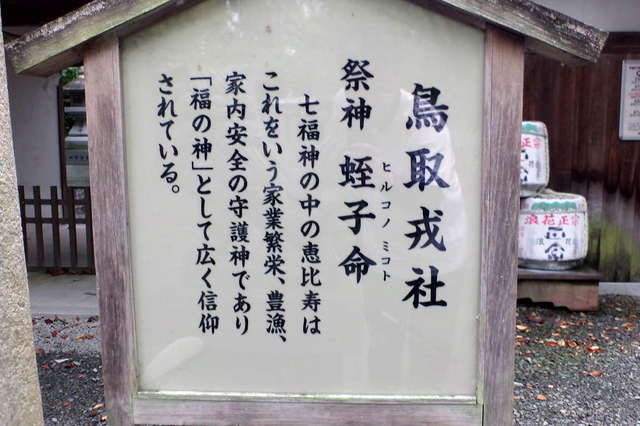 鳥取戎社
祭神 蛭子命
ヒルコノミコト
七福神の中の恵比寿は
これをいう家業繁栄、豊漁、
家内安全の守護神であり
「福の神」として広く信仰
されている。
正宗
浪花正宗